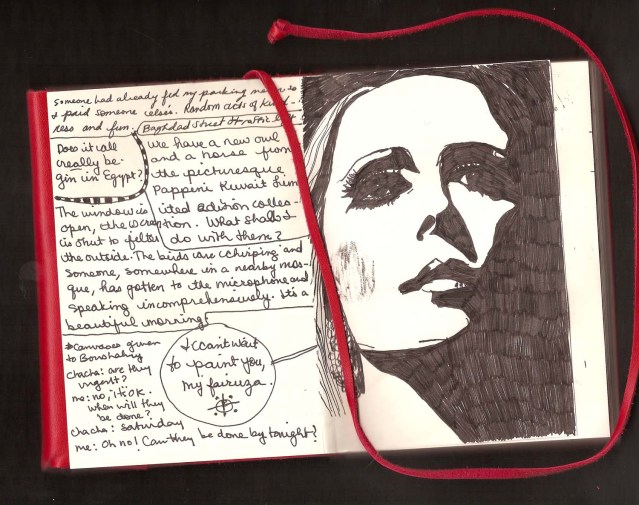 Someone had already fed my parking meter so
I paid someone else's. Random acts of kind-
ness and fun.
Baghdad Street traffic
Does it all
really be-
gin in Egypt?
we have a new owl
and a horse from
the picturesque
Papperii Kuwait Lim
ited edition collec-
tion. What shall I
do with them?
The window is
open, the screen
is shut to filter
the outside. The birds are chirping and
someone, somewhere in a nearby mos-
que, has gotten to the microphone and
speaking incomprehensively. It's a
beautiful morning!
Canvases
to Boushahry
chacha: are they
urgent?
me: no, it's OK.
when will they
be done?
chacha: saturday
me: Oh no! Can they be done by tonight?
I can't wait
to paint you,
my fairuza.